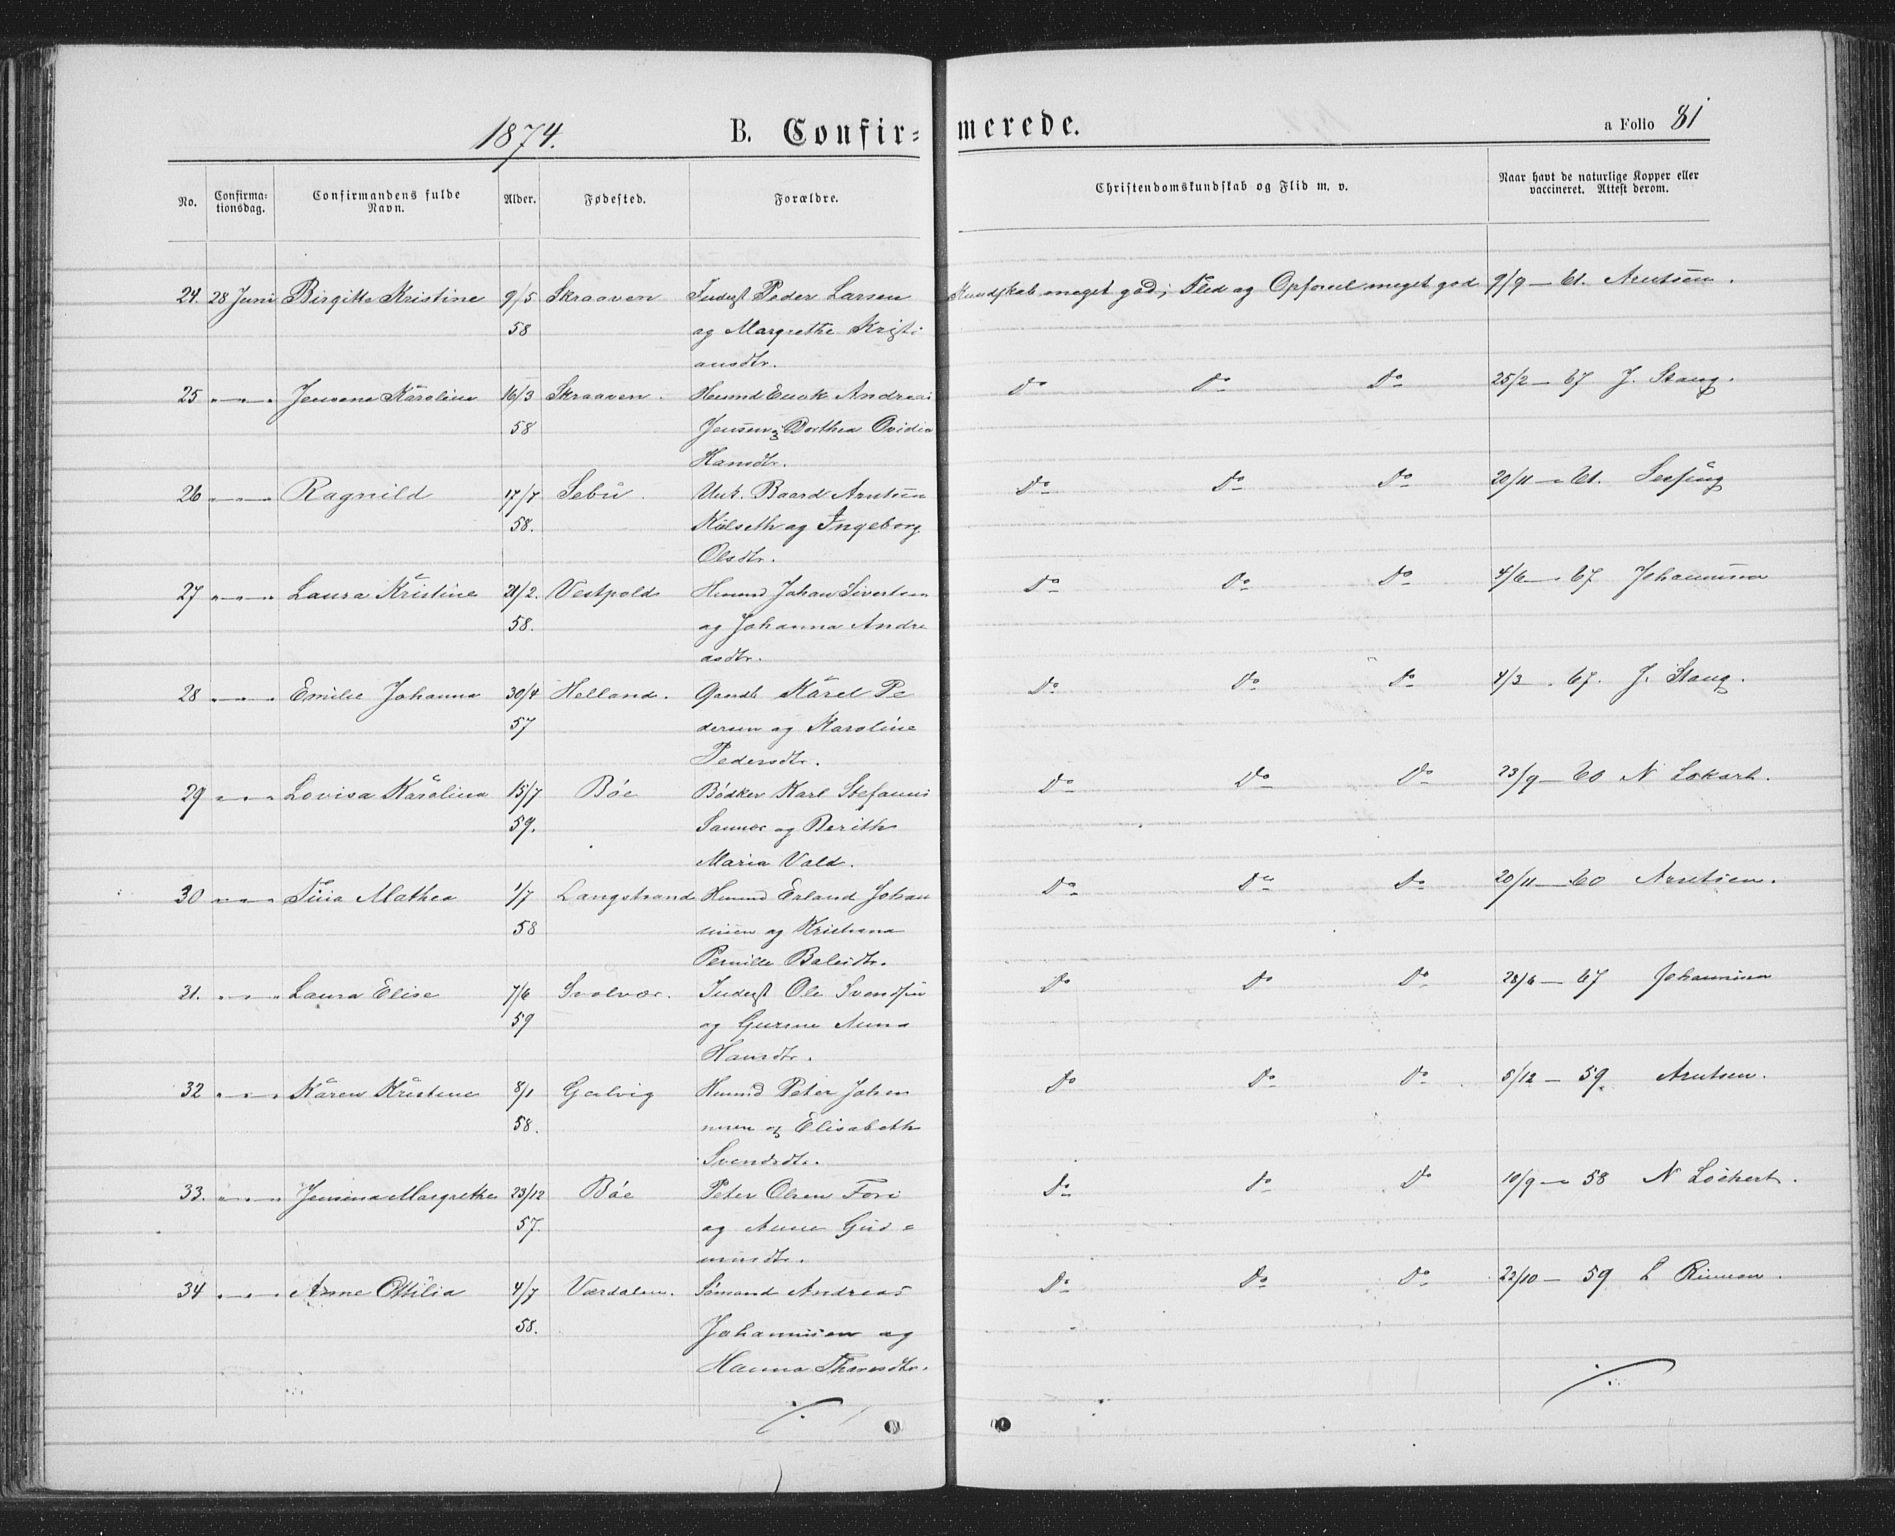 1874.
B. Confir=
merede.
a Folio 81
No.
Confirma=
tionsdag.
Confirmandens fulde
Navn.
Alder.
Fødested.
Forældre.
Christendomskundskab og Flid m. v.
Naar havt de naturlige Kopper eller
vaccineret. Attest derom.
24. 28 Juni Birgitte Kristine 9/5 Skraaven Inderst Peder Larsen Kundskab meget god; Flid og Opførsel meget god 9/9 – 61. Arntsen.
58 og Margrethe Kristi
ansdtr.
25 Karolina 16/3 Skraaven. Husmd Enok Andreas Do Do Do 25/2 – 67 J. Stang.
58 Jensen og Dorthea Ovidia
Hansdtr.
26 Ragnild 17/7 Sebu. Baard Arntsen Do Do Do 20/11 – 61.
58. og Ingeborg
Olsdtr.
27 Laura Kristine 21/2. Vestpold Husmd Johan Sivertsen Do Do Do 4/6 – 67 Johannesen
58. og Johanna Andre
asdtr.
28 Emilie Johanna 30/4 Helland. Karel Pe Do Do Do 4/3 – 67. J. Stang.
57 dersen og Karoline
Pedersdtr.
29 Lovisa Karolina 15/7 Bøe Bødker Karl Stefanus Do Do Do 23/9 – 60 N
59. og Berith
Maria Vold.
30 Tina Mathea 1/7 Langstrand Husmd Erland Johan Do Do Do 20/11 – 60 Arntsen.
58 nisen og Kristiana
Pernille
31. Laura Elise 7/6 Svolvær. Inderst Ole Svendsen Do Do Do 28/6 – 67 Johannisen
59 og Gurine Anna
Hansdtr.
32 Karen Kristine 8/1 Galvig Husmd Peter Johan Do Do Do 5/12 – 59 Arntsen.
58. nesen og Elisabeth
Svendsdtr.
33. Jensina Margrethe 23/12 Bøe Peter Olsen Do Do Do 10/9 – 58 N Lochert.
57. og Anne Gud=
mundsdtr.
34 Anne Ottilia 4/7 Værdalen. Sømand Andreas Do Do Do 22/10 – 59 L
58. Johannisen og
Hanna Thoresdtr.